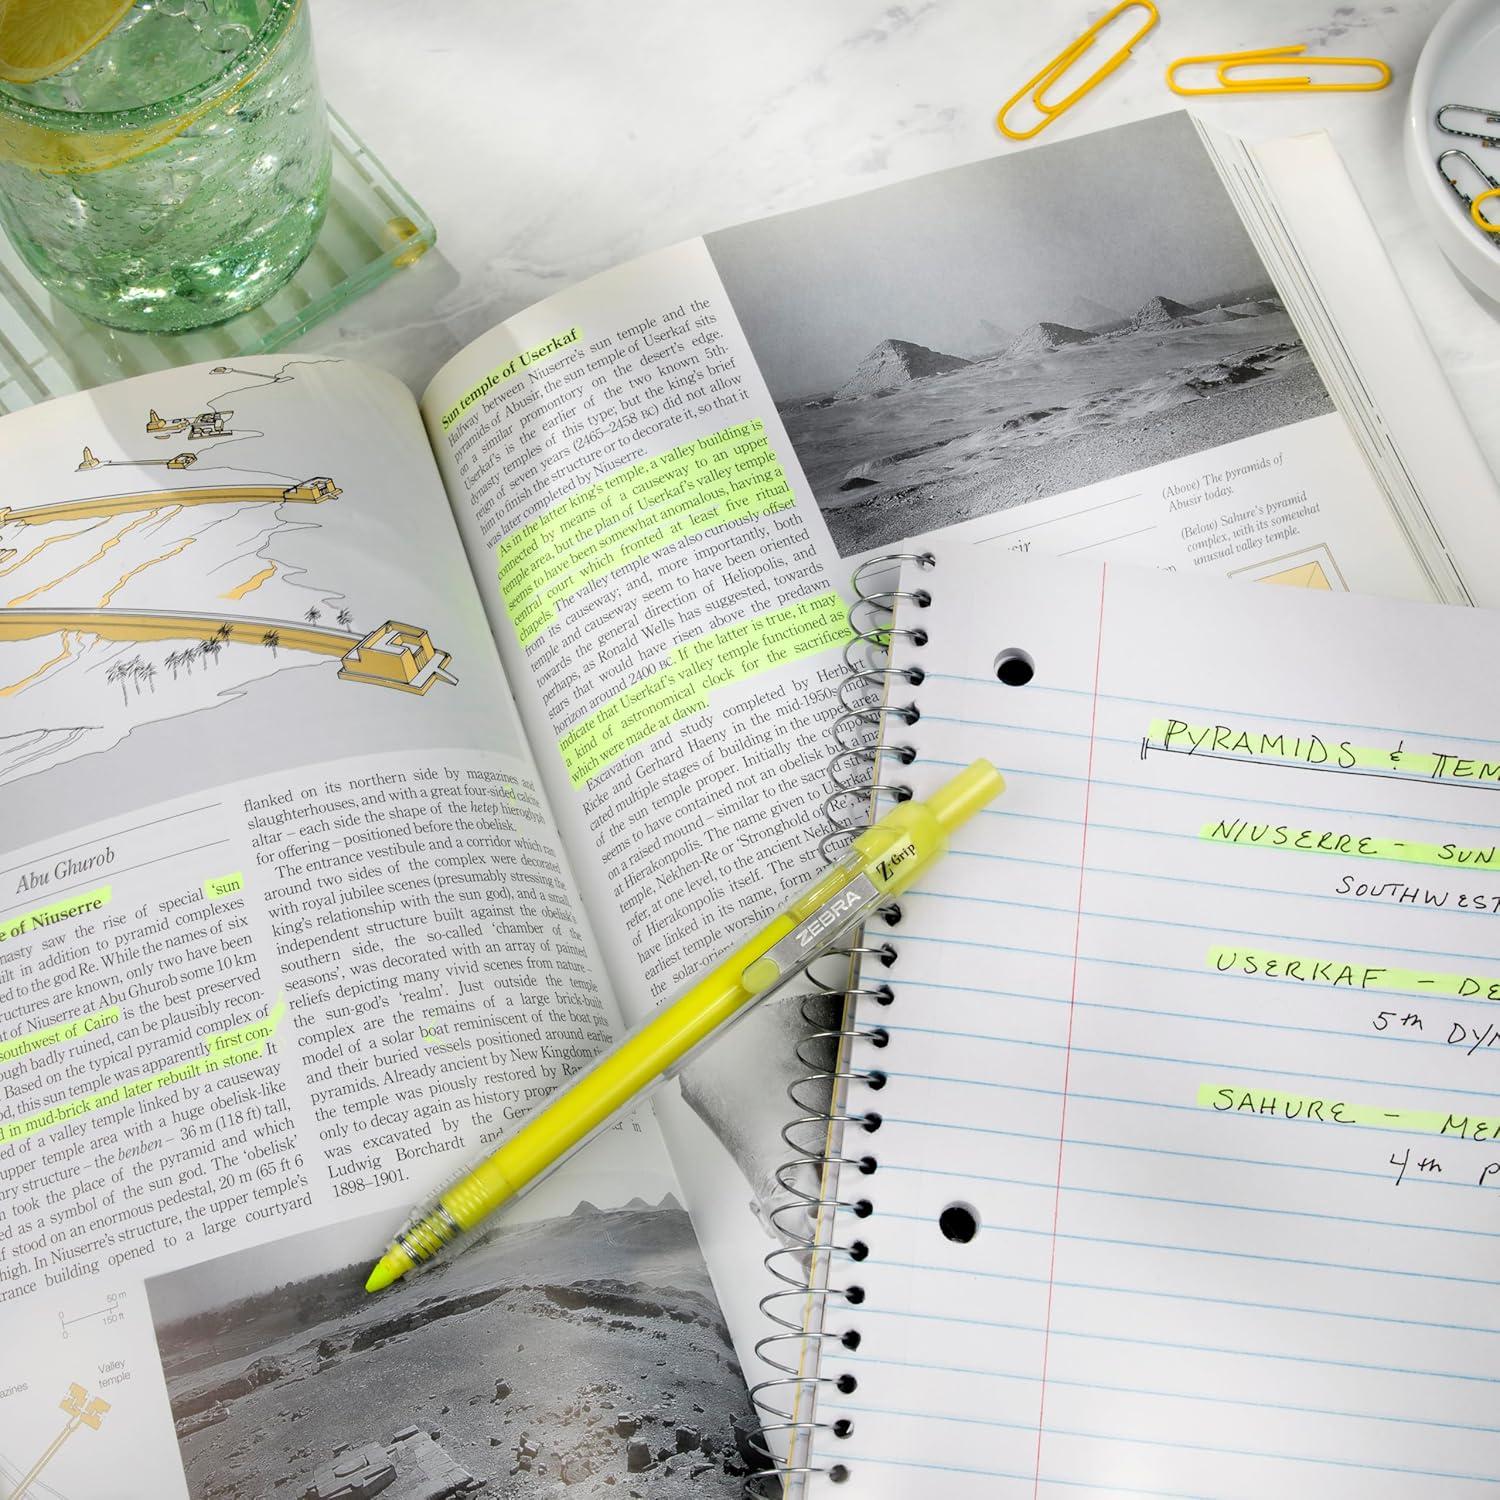 Abu Ghurob
e of Niuserre
nasty saw the rise of special ‘sun
ilt in addition to pyramid complexes
ed to the god Re. While the names of six
ructures are known, only two have been
t of Niuserre at Abu Ghurob some 10 km
southwest of Cairo is the best preserved
ough badly ruined, can be plausibly recon-
. Based on the typical pyramid complex of
od, this sun temple was apparently first con-
d in mud-brick and later rebuilt in stone. It
ed of a valley temple linked by a causeway
upper temple area with a huge obelisk-like
nry structure – the benben – 36 m (118 ft) tall,
h took the place of the pyramid and which
ed as a symbol of the sun god. The ‘obelisk’
f stood on an enormous pedestal, 20 m (65 ft 6
high. In Niuserre’s structure, the upper temple’s
trance building opened to a large courtyard
50 m
150 ft
0
0
Valley
temple
azines
flanked on its northern side by magazines and
slaughterhouses, and with a great four-sided calcite
altar – each side the shape of the hetep hieroglyph
for offering – positioned before the obelisk.
The entrance vestibule and a corridor which ran
around two sides of the complex were decorated
with royal jubilee scenes (presumably stressing the
king’s relationship with the sun god), and a small,
independent structure built against the obelisk’s
southern side, the so-called ‘chamber of the
seasons’, was decorated with an array of painted
reliefs depicting many vivid scenes from nature –
the sun-god’s ‘realm’. Just outside the temple
complex are the remains of a large brick-built
model of a solar boat reminiscent of the boat pits
and their buried vessels positioned around earlier
pyramids. Already ancient by New Kingdom
the temple was piously restored by
only to decay again as history
was excavated by the
Ludwig Borchardt and in
1898–1901.
Sun temple of Userkaf
Halfway between Niuserre’s sun temple and the
pyramids of Abusir, the sun temple of Userkaf sits
on a similar promontory on the desert’s edge.
Userkaf’s is the earlier of the two known 5th-
dynasty temples of this type; but the king’s brief
reign of seven years (2465–2458 BC) did not allow
him to finish the structure or to decorate it, so that it
was later completed by Niuserre.
As in the latter king’s temple, a valley building is
connected by means of a causeway to an upper
temple area, but the plan of Userkaf’s valley temple
seems to have been somewhat anomalous, having a
central court which fronted at least five ritual
chapels. The valley temple was also curiously offset
from its causeway; and, more importantly, both
temple and causeway seem to have been oriented
towards the general direction of Heliopolis, and
perhaps, as Ronald Wells has suggested, towards
stars that would have risen above the predawn
horizon around 2400 BC. If the latter is true, it may
indicate that Userkaf’s valley temple functioned as
a kind of astronomical clock for the sacrifices
which were made at dawn.
Excavation and study completed by Herbert
Ricke and Gerhard Haeny in the mid-1950s indi
cated multiple stages of building in the upper area
of the sun temple proper. Initially the compoun
seems to have contained not an obelisk but a m
on a raised mound – similar to the sacred
at Hierakonpolis. The name given to Userkaf
temple, Nekhen-Re or ‘Stronghold of Re’,
refer, at one level, to the ancient Nekhen
of Hierakonpolis itself. The structure
have linked in its name, form
earliest temple worship of
the solar-orien
(Above) The pyramids of
Abusir today.
(Below) Sahure’s pyramid
complex, with its somewhat
unusual valley temple.
sir
ion
Z-Grip
ZEBRA
PYRAMIDS & TEM
NIUSERRE - SUN
SOUTHWEST
USERKAF - DE
5th DYN
SAHURE - MEM
4th P